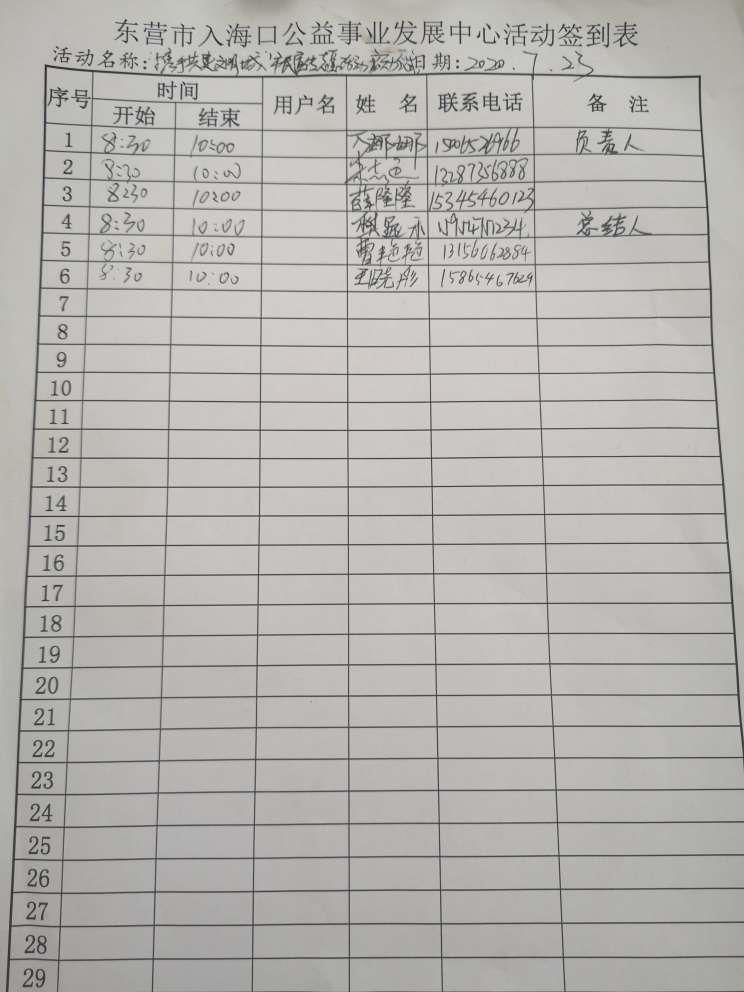 东营市入海口公益事业发展中心活动签到表
活动名称：“携手共建文明城 日期：2020.7.23
序号 时间 用户名 姓 名 联系电话 备 注
开始 结束
1 8:30 10:00 娜娜 负责人
2 8:30 10:00 13287356888
3 8:30 10:00 薛隆隆 15345460123
4 8:30 10:00 总结人
5 8:30 10:00 曹艳艳 13156062884
6 8:30 10:00 王晓彤 15865467629
7
8
9
10
11
12
13
14
15
16
17
18
19
20
21
22
23
24
25
26
27
28
29